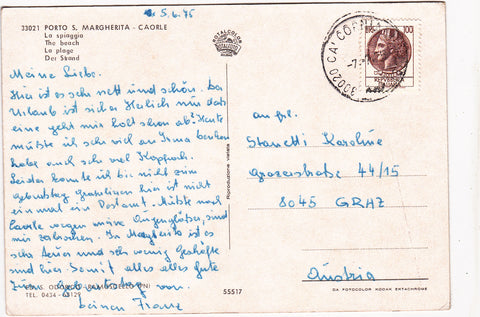 5.6.75
33021 PORTO S. MARGHERITA - CAORLE
La spiaggia
The beach
La plage
Der Strand
Meine Liebe.
Hier ist es sehr nett und schön. Der
Urlaub ist sicher herlich nur das
eine geht mir holt schon ab. Heute
müßte ich sehr viel an Irma denken
habe auch sehr viel Kopfweh.
Leider konnte ich dir nicht zum
Geburtstag gratulieren hier ist nicht
ein mal ein Postamt. Müßte nach
Caorle wegen meine Augengläser, sind
mir zerbrochen. In Margherita ist es
sehr teuer und sehr wenig Geschäfte
sind hier. Somit alles alles gute
zum Geburtstag von
deinen Franz
TEL. 0434
55517
Riproduzione vietata
33020 CA' CO
100
an frl.
Stanetti Karoline
Grazerstraße 44/15
8045 GRAZ
Austria
DA FOTOCOLOR KODAK EKTACHROME